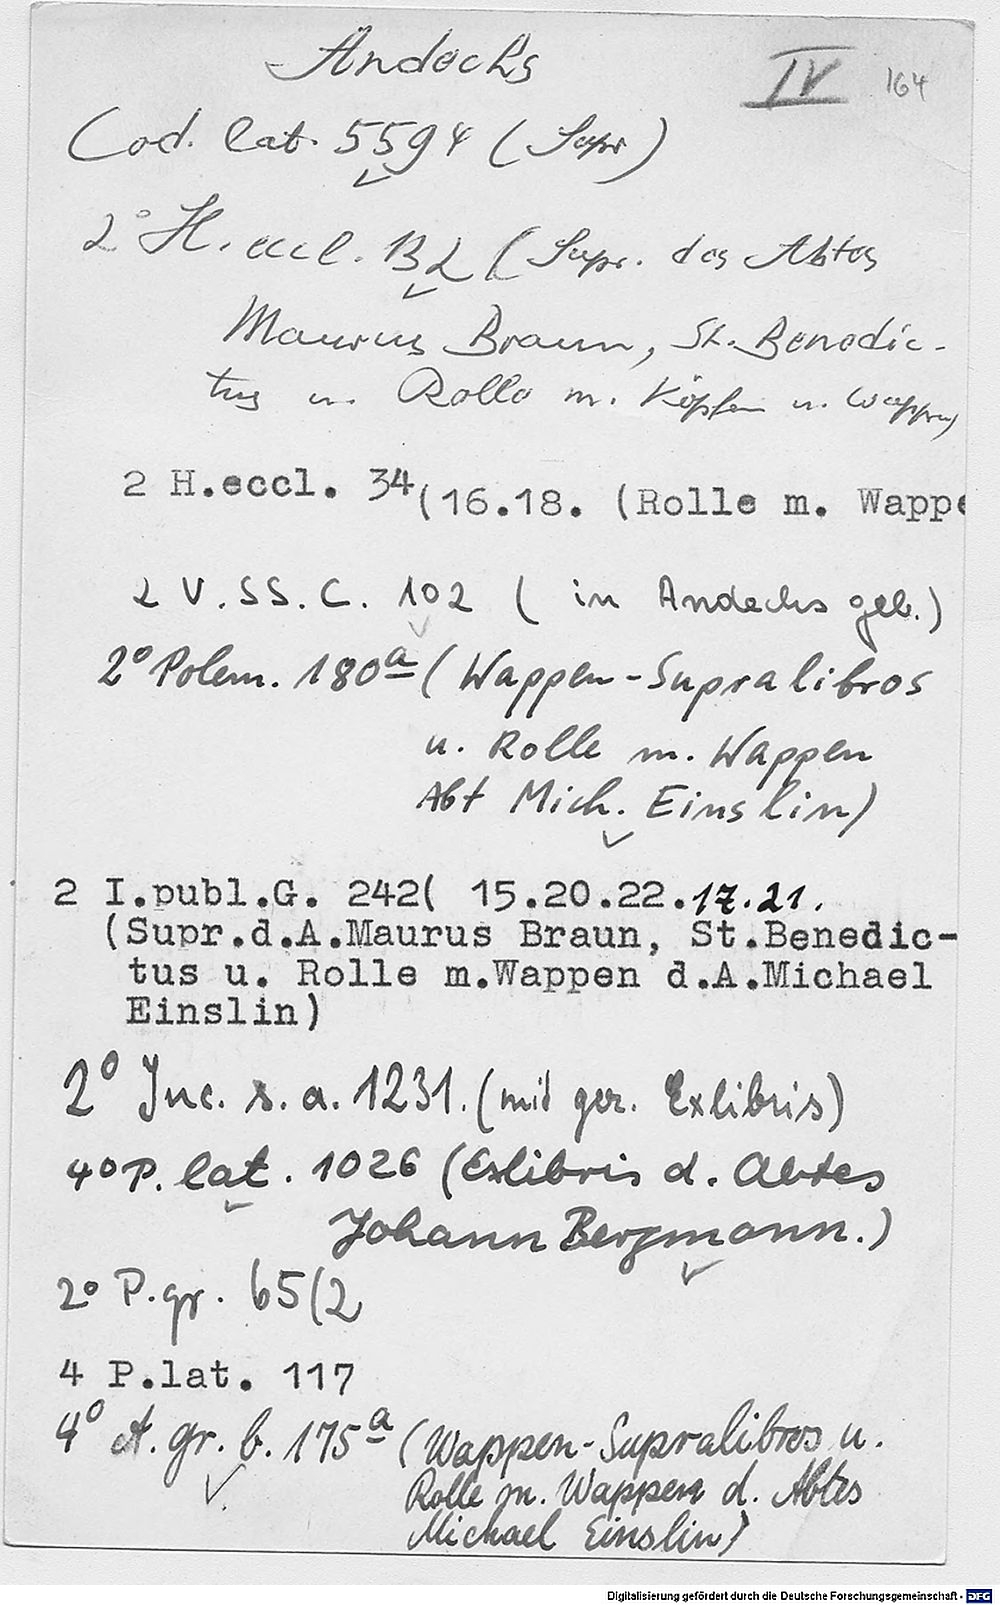 Andechs
IV 164
Cod. lat. 5594 (Supr)
2° H. eccl. 132 (Supr. des Abtes
Maurus Braun, St. Benedic-
tus u. Rolle m. Köpfen u. Wappen)
2 H.eccl. 34(16.18. (Rolle m. Wappe
2 V. SS. C. 102 (in Andechs geb.)
2° Polem. 180a (Wappen-Supralibros
u. Rolle m. Wappen
Abt Mich. Einslin)
2 I.publ.G. 242( 15.20.22.17.21.
(Supr.d.A.Maurus Braun, St.Benedic-
tus u. Rolle m.Wappen d.A.Michael
Einslin)
2° Inc. s. a. 1231. (mit ger. Exlibris)
4° P. lat. 1026 (Exlibris d. Abtes
Johann Bergmann.)
2° P. gr. 65(2
4 P.lat. 117
4° A. gr. b. 175a (Wappen-Supralibros u.
Rolle m. Wappen d. Abtes
Michael Einslin)
Digitalisierung gefördert durch die Deutsche Forschungsgemeinschaft - DFG